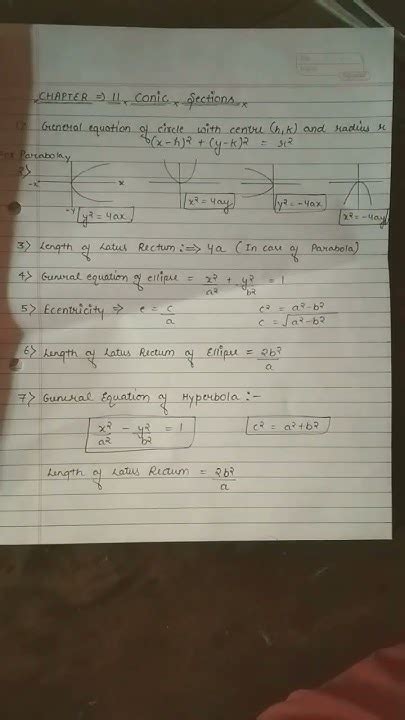 CHAPTER ⇒ 11 Conic Sections
1) General equation of circle with centre (h,k) and radius r
(x-h)² + (y-k)² = r²
For Parabola
2)
-x x
-y y² = 4ax x² = 4ay y² = -4ax x² = -4ay
3) Length of Latus Rectum :⇒ 4a (In case of Parabola)
4) General equation of ellipse = x²/a² + y²/b² = 1
5) Ecentricity ⇒ e = c/a c² = a²-b²
c = √a²-b²
6) Length of Latus Rectum of Ellipse = 2b²/a
7) General Equation of Hyperbola :-
x²/a² - y²/b² = 1 c² = a²+b²
Length of Latus Rectum = 2b²/a